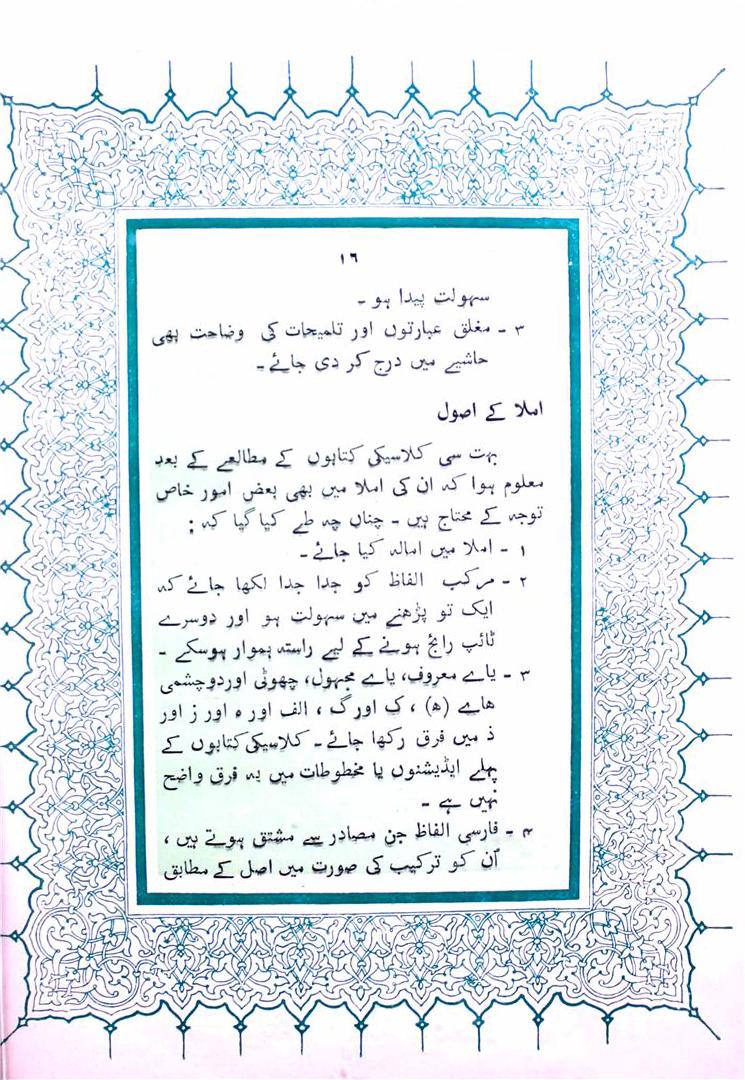 ۱٦
سہولت پیدا ہو ۔
۳ ۔ مغلق عبارتوں اور تلمیحات کی وضاحت بھی
حاشیے میں درج کر دی جائے ۔
املا کے اصول
بہت سی کلاسیکی کتابوں کے مطالعے کے بعد
معلوم ہوا کہ ان کی املا میں بھی بعض امور خاص
توجہ کے محتاج ہیں ۔ چناں چہ طے کیا گیا کہ :
۱ ۔ املا میں امالہ کیا جائے ۔
۲ ۔ مرکب الفاظ کو جدا جدا لکھا جائے کہ
ایک تو پڑھنے میں سہولت ہو اور دوسرے
ٹائپ رایج ہونے کے لیے راستہ ہموار ہوسکے ۔
۳ ۔ یاے معروف، یاے مجہول، چھوٹی اور دوچشمی
ھاے (ھ) ، ک اور گ ، الف اور ہ اور ز اور
ذ میں فرق رکھا جائے ۔ کلاسیکی کتابوں کے
پہلے ایڈیشنوں یا مخطوطات میں یہ فرق واضح
نہیں ہے ۔
۴ ۔ فارسی الفاظ جن مصادر سے مشتق ہوتے ہیں ،
اُن کو ترکیب کی صورت میں اصل کے مطابق